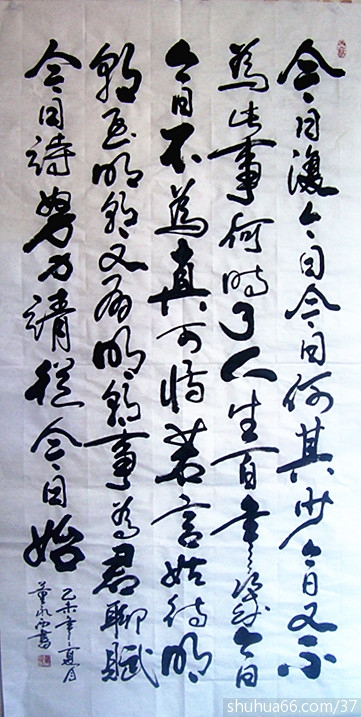 今日復今日今日何其少今日又不
為此事何時了人生百年幾今日
今日不為真可惜若言姑待明
朝至明朝又有明朝事為君聊賦
今日詩努力請從今日始
乙未年夏月
書
shuhua66.com/37